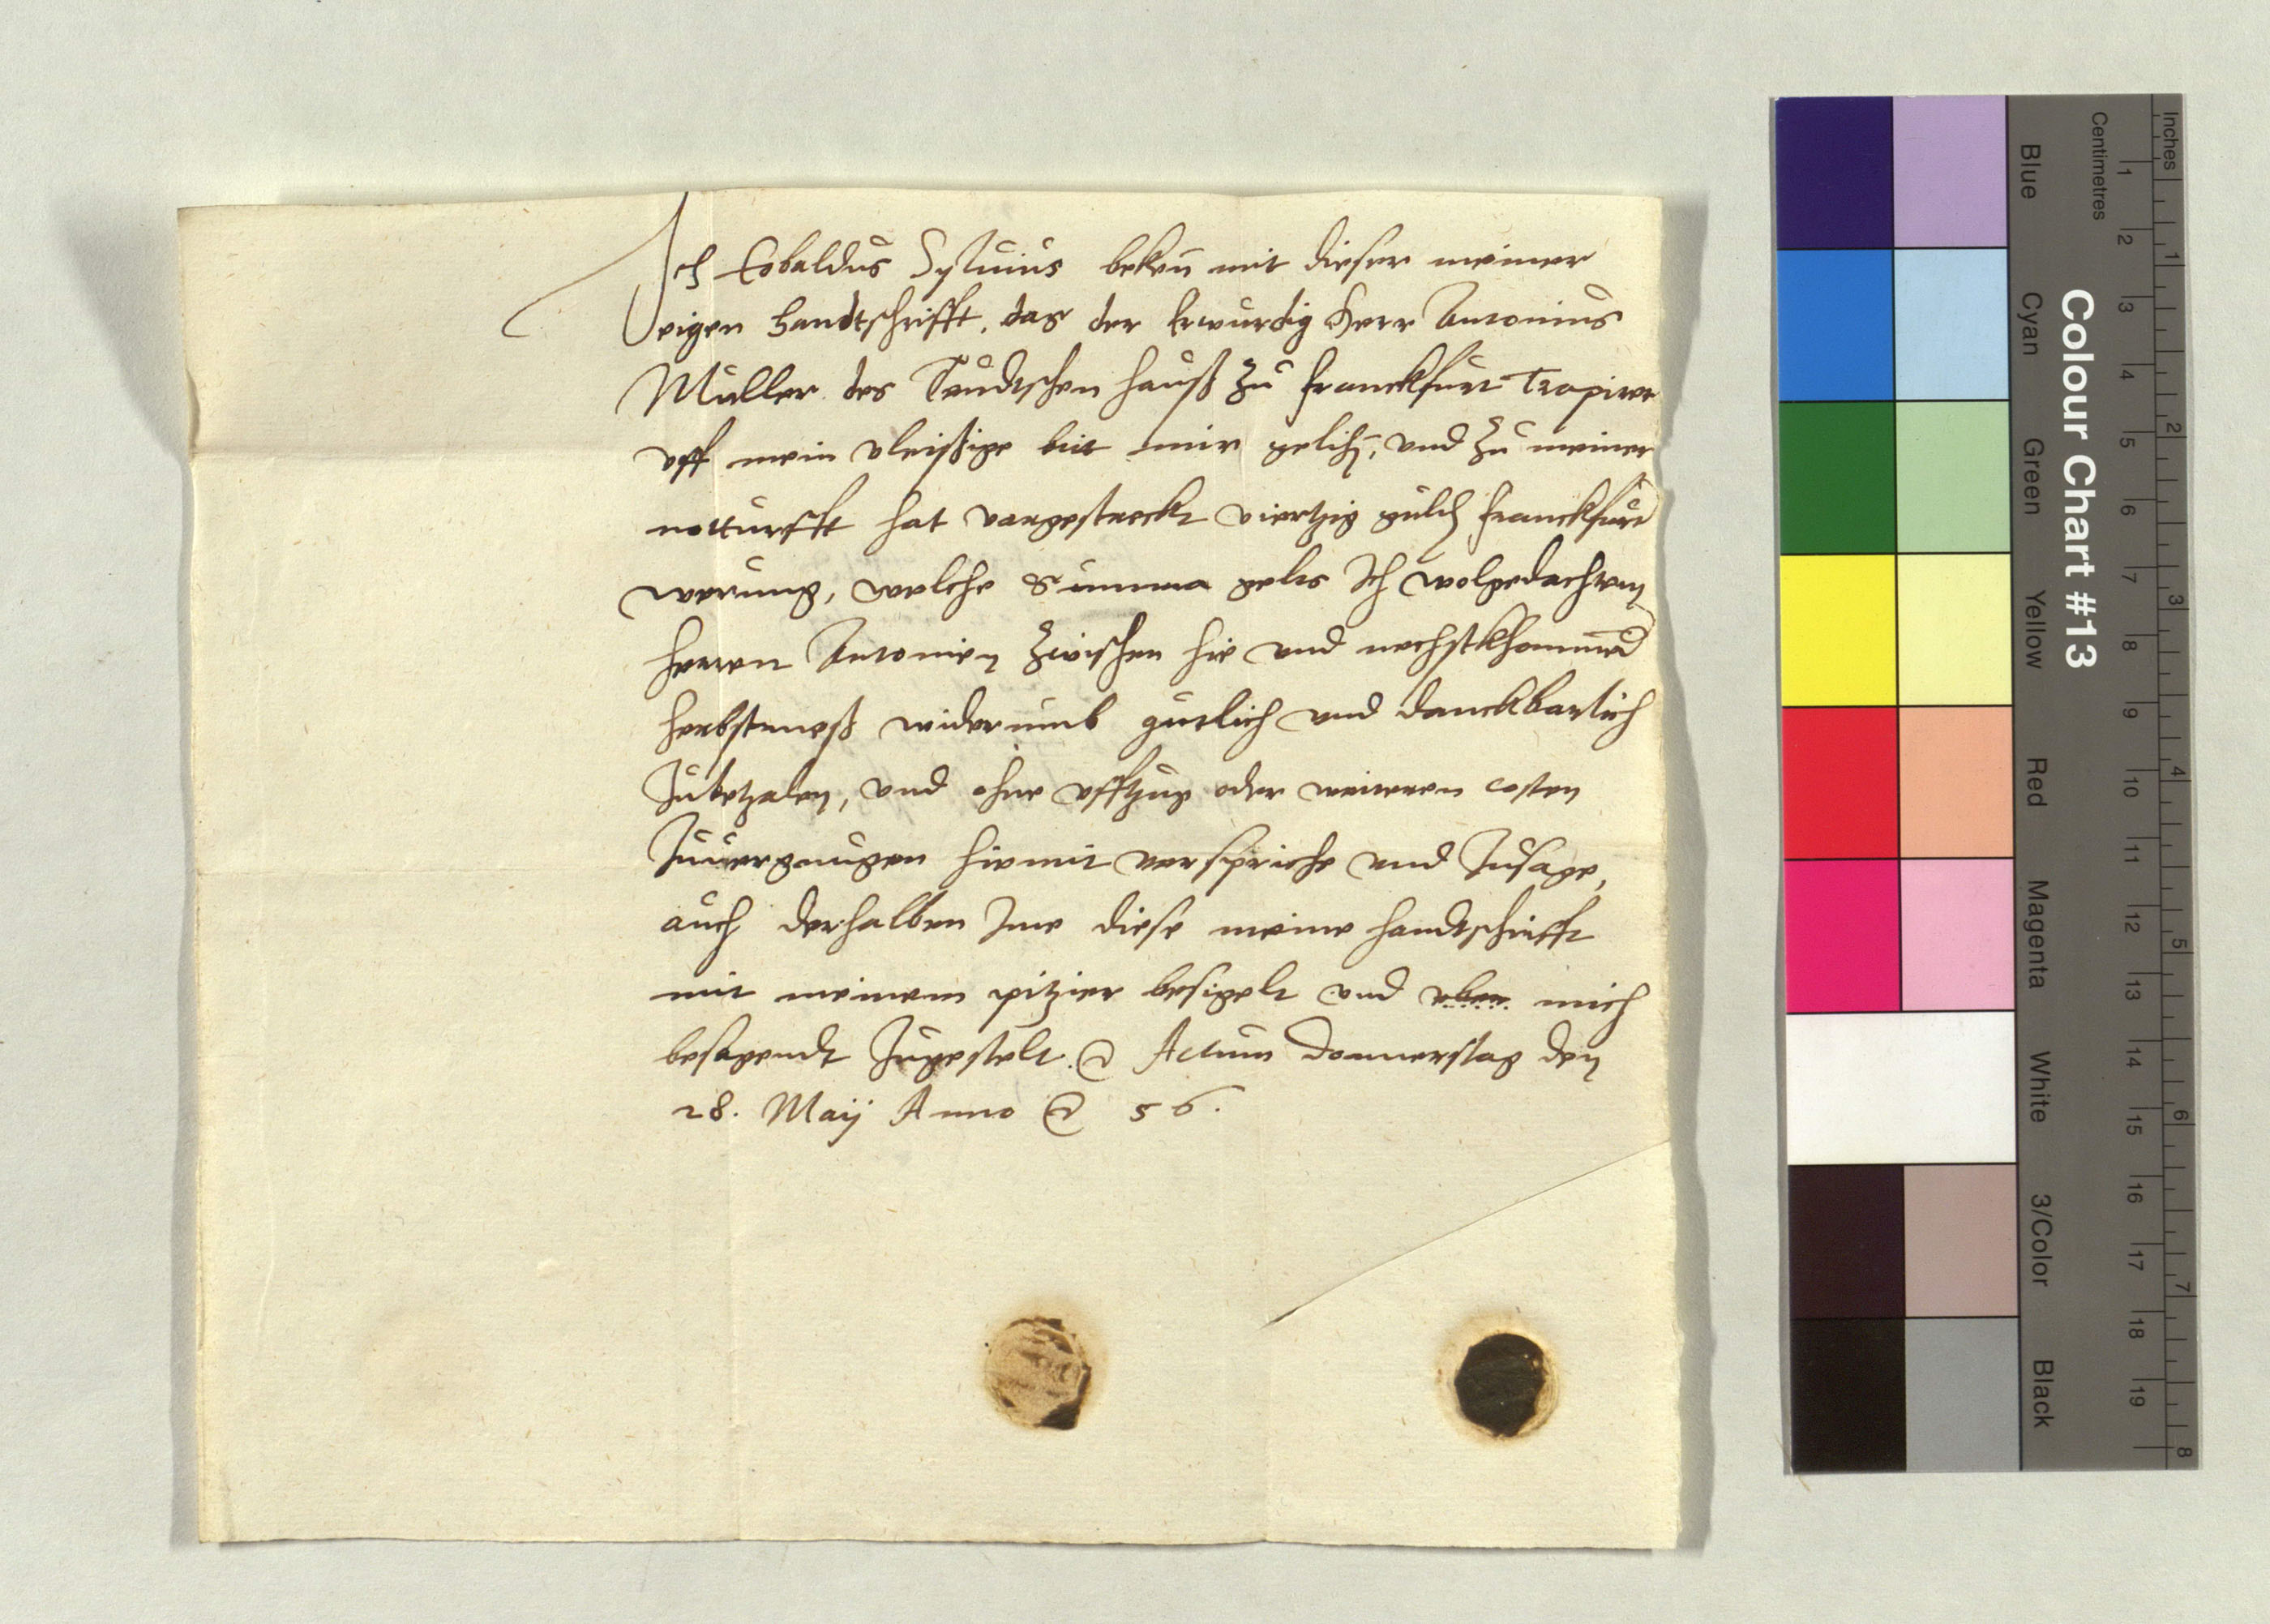 Ich Cobaldus Syluius beken mit dieser meiner
eigen handtschrifft, das der Erwurdig Herr Antonius
Muller des Teudtschen hauß zu franckfurt Trapirer
vff mein vleißige bit mir gelihen, vnd zu meiner
notturfft hat vorgestreckt viertzig guld franckfurt
werung, welche Summa gelts Ich wolgedachtem
herren Antonien zwischen hie vnd nechstkhommend
herbstmeß widerumb gutlich vnd danckbarlich
zubetzalen, vnd ohne vfftzug oder weiteren costen
zuuergnugen hiemit verspriche vnd zusage,
auch derhalben Ime diese meine handtschrifft
mit meinem pitzier besigelt vnd vber mich
besagendt zugestelt. Actum Donnerstag den
28. Maij Anno 56.
Colour Chart #13
Blue Cyan Green Yellow Red Magenta White 3/Color Black
Centimetres 1 2 3 4 5 6 7 8 9 10 11 12 13 14 15 16 17 18 19
Inches 1 2 3 4 5 6 7 8